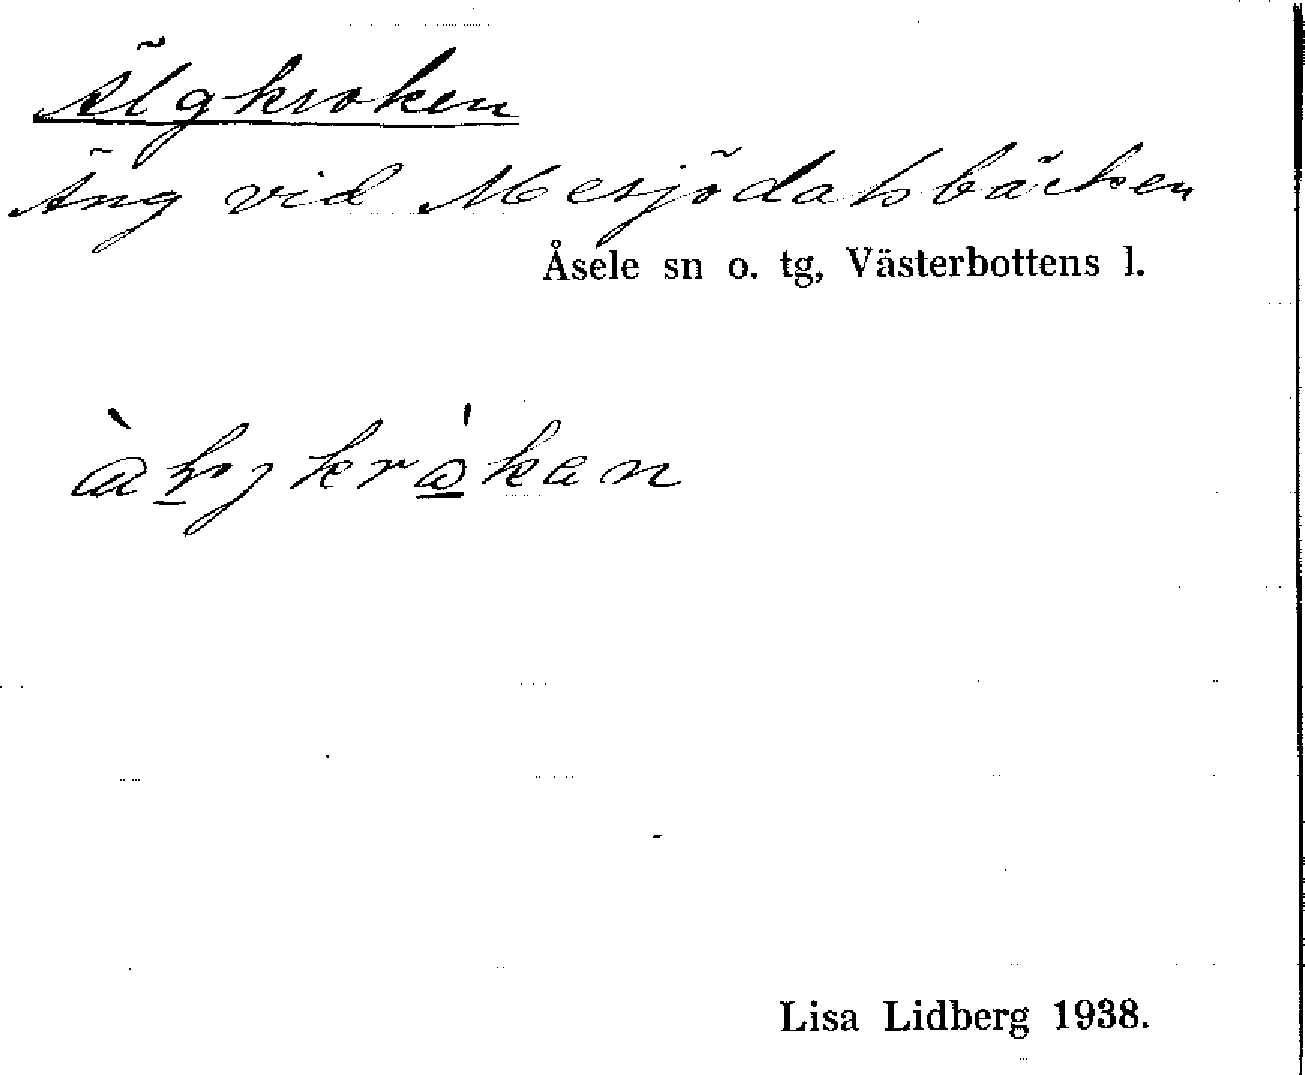 Älgkroken
Äng vid Mesjödalsbäcken
Åsele sn o. tg, Västerbottens l.
Lisa Lidberg 1938.